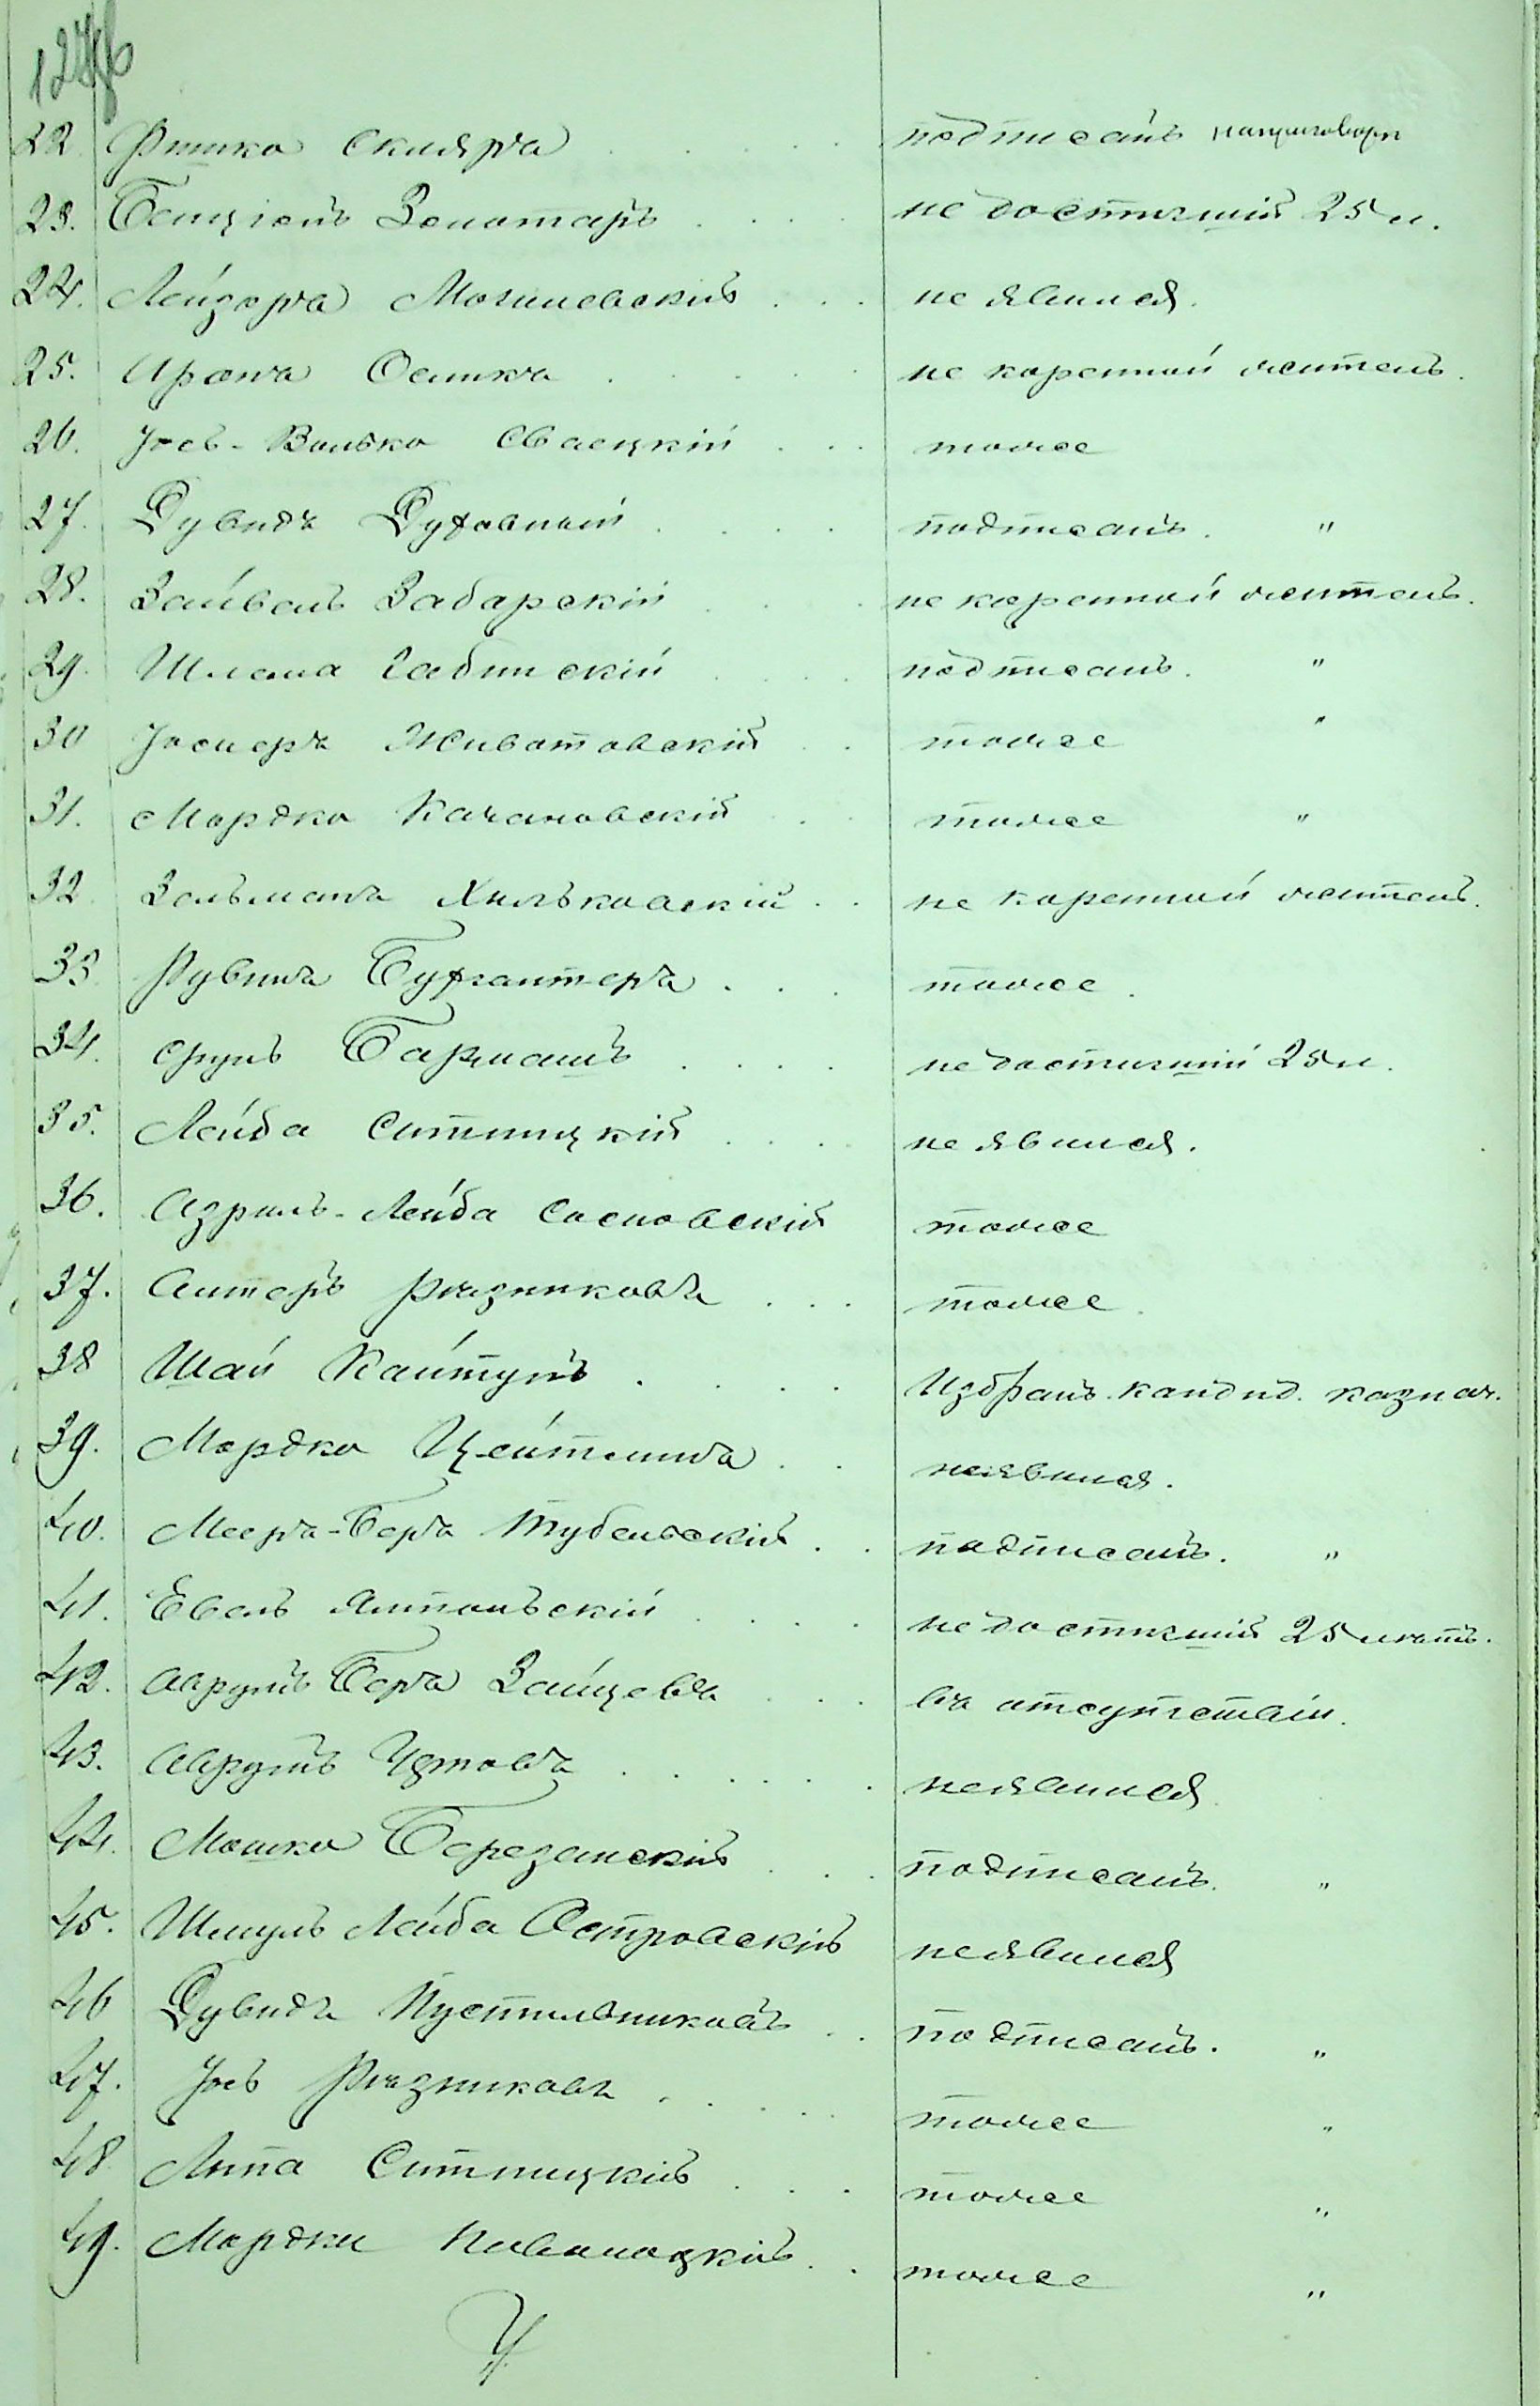 22. Фишка Скляръ . . . . подписалъ на приговорѣ
23. Бенціонъ Золотарь . . . . не достигшій 25 л.
24. Лейзоръ Могилевскій . . . не явился.
25. Аронъ Осина . . . . . не коренной житель.
26. Іось-Волько Сваецкій . . . тоже
27. Дувидъ Духовный . . . . подписалъ. "
28. Зайвель Забарскій . . . . не коренной житель.
29. Шлема Габинскій . . . . подписалъ. "
30 Іосифъ Животовскій . . тоже "
31. Мордко Качановскій . . . тоже "
32. Зельманъ Хильковскій . . не коренной житель.
33. Рувинъ Бухгалтеръ . . . тоже.
34. Сруль Бармашъ . . . . не достигшій 25 л.
35. Лейба Ситницкій . . . . не явился.
36. Азриль-Лейба Сосновскій тоже
37. Алтеръ Рѣзниковъ . . . тоже.
38 Шай Кантунъ . . . . Избранъ кандид. казнач.
39. Мордко Цейтлинъ . . неявился.
40. Мееръ-Беръ Тубельскій . . подписалъ. "
41. Евель Ямпольскій . . . недостигшій 25 лѣтъ.
42. Аврумъ Беръ Зайцевъ . . . въ отсутствіи.
43. Аврумъ . . . . . . неявился
44. Мошко Березанскій . . . подписалъ. "
45. Шмуль Лейба Островскій неявился
46 Дувидъ Пустильниковъ . . подписалъ. "
47. Іось Рѣзниковъ . . . . . тоже "
48 Липа Ситницкій . . . тоже "
49. Мордко Паволоцкій . . тоже "